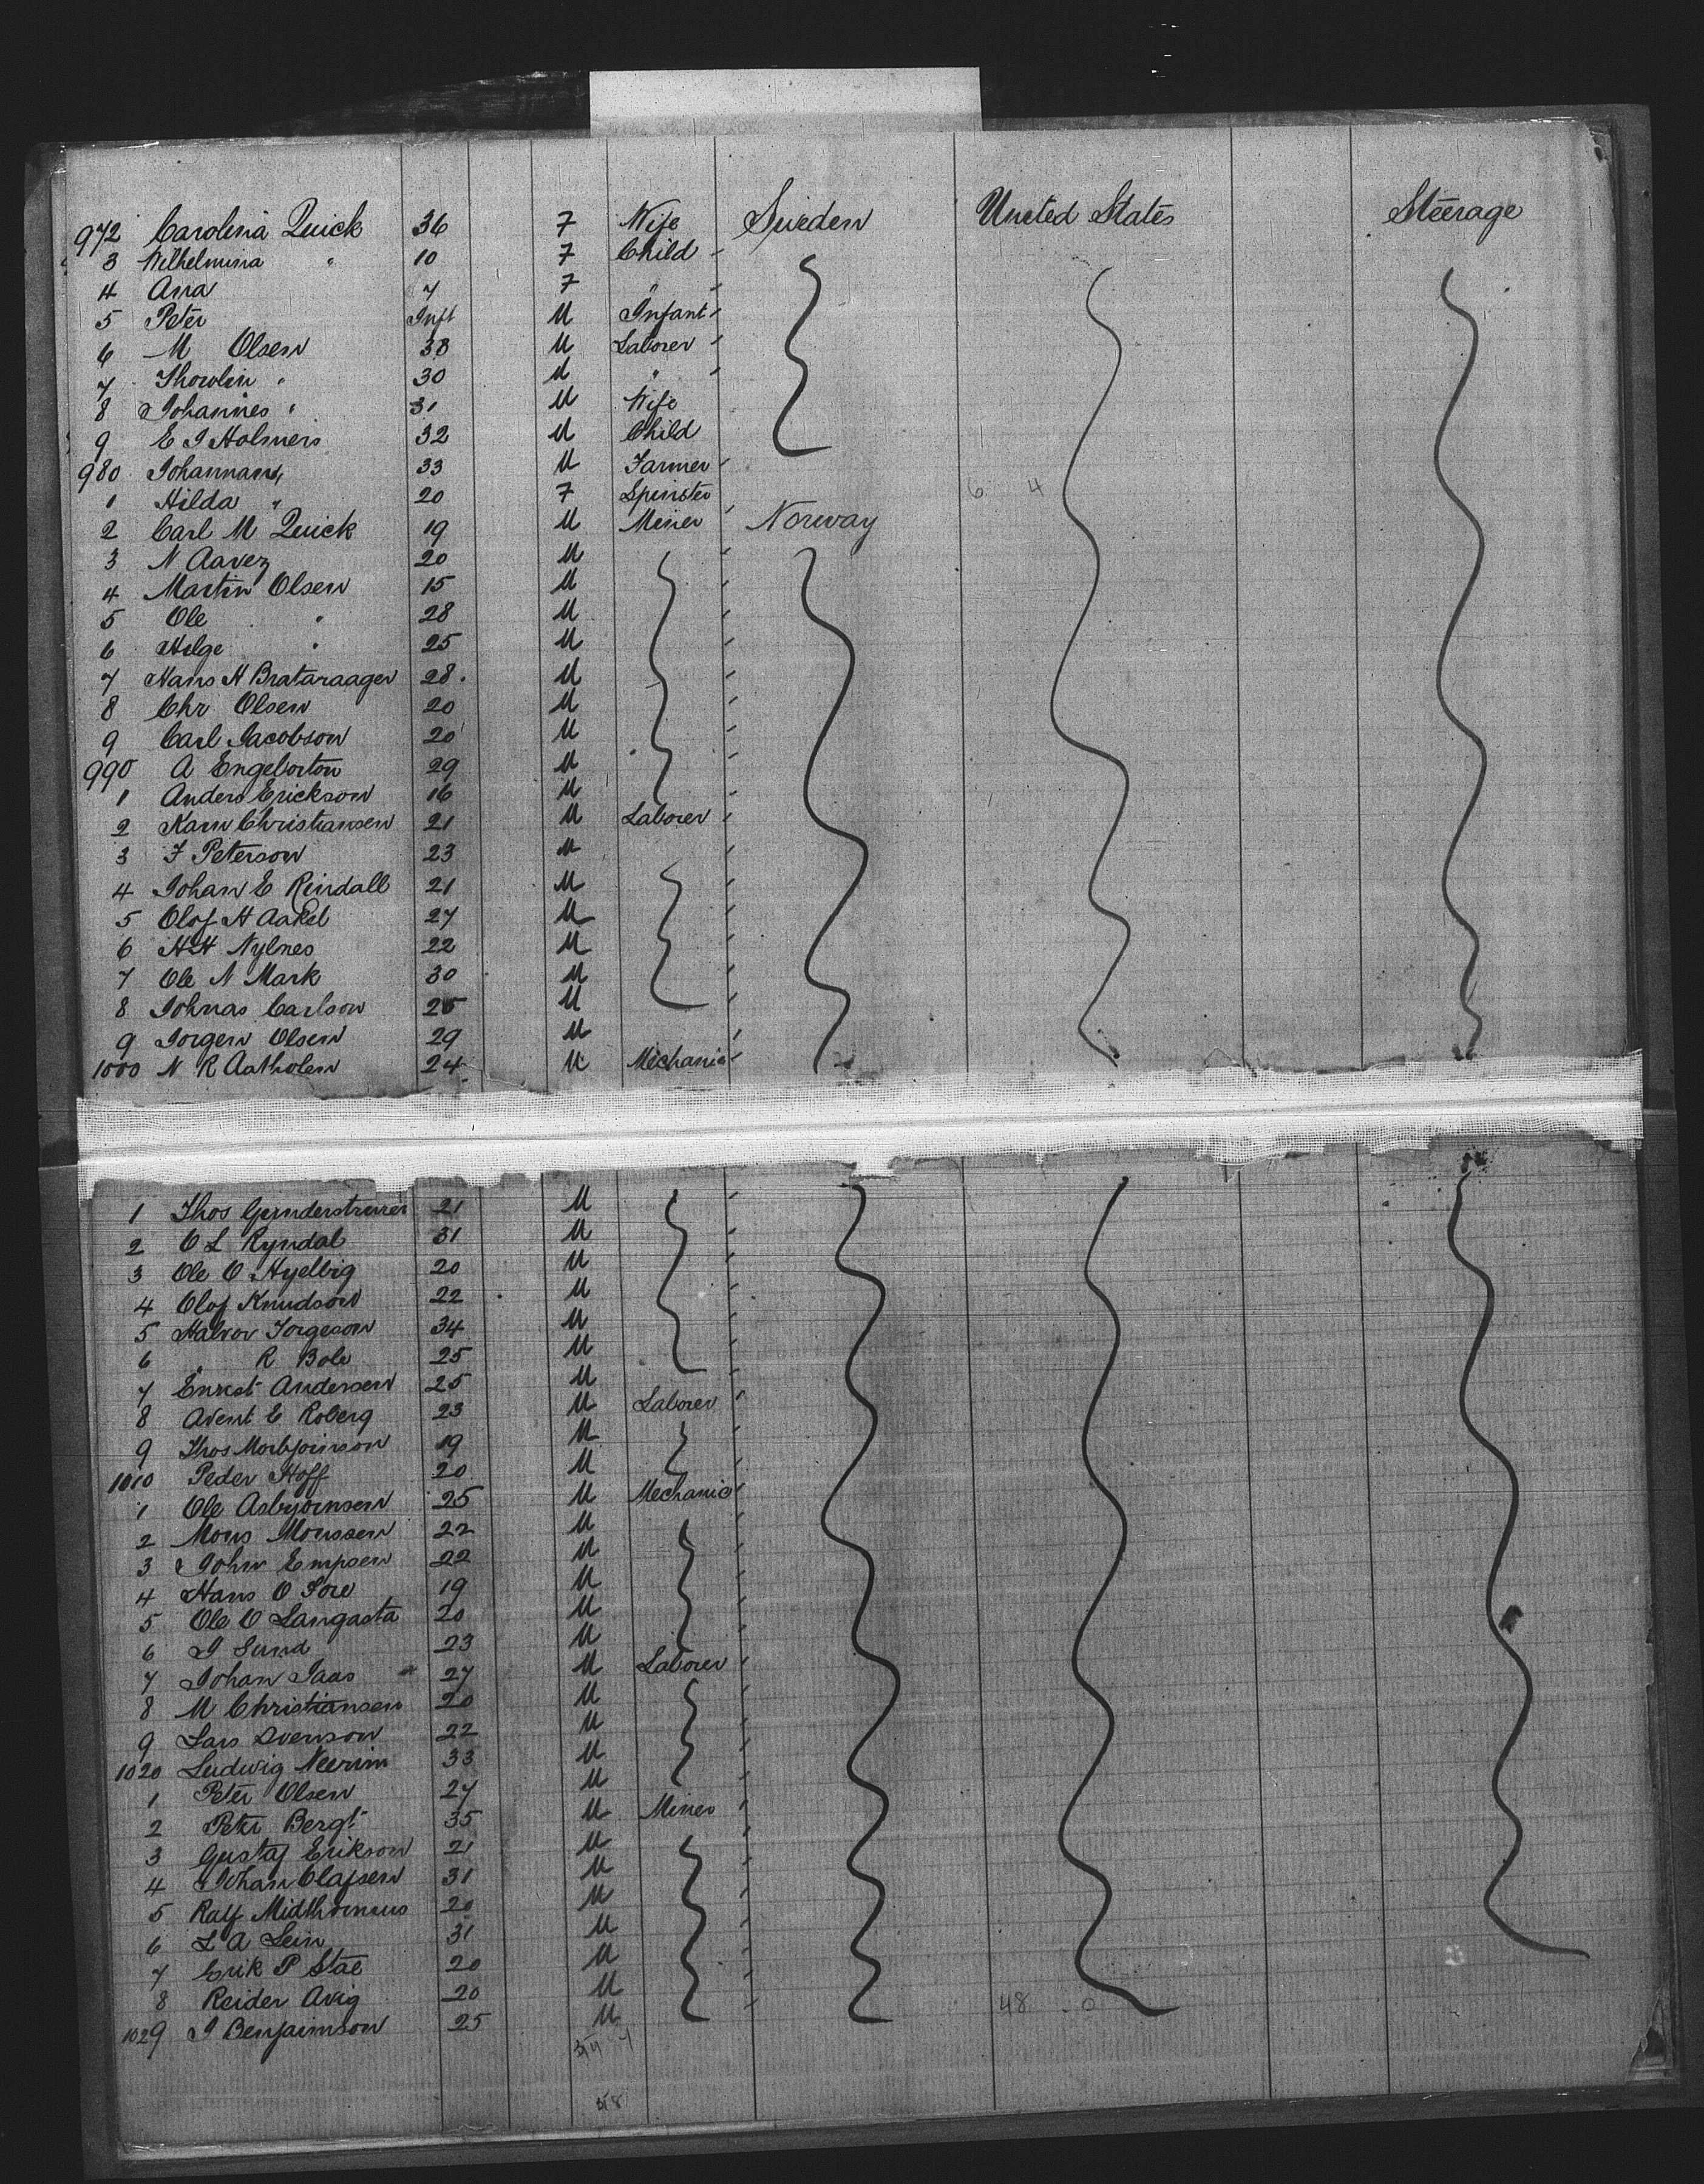 972 Carolina Quick 36 F Wife Sweden United States Steerage
3 Wilhelmina " 10 F Child
4 Ana 7 F "
5 Peter Inft M Infant
6 M Olsen 38 M Laborer
7 Thowlin " 30 M "
8 Johannes " 31 M Wife
9 E J Holmers 32 M Child
980 Johannans 33 M Farmer
1 Hilda " 20 F Spinster 6 4
2 Carl M Quick 19 M Miner Norway
3 N Aavez 20 M
4 Martin Olsen 15 M
5 Ole " 28 M
6 Helge " 25 M
7 Hans H Brataraager 28 M
8 Chr Olsen 20 M
9 Carl Jacobson 20 M
990 A Engeborton 29 M
1 Anders Erickson 16 M
2 Karn Christiansen 21 M Laborer
3 F Peterson 23 M
4 Johan E Rindall 21 M
5 Olof H Aakel 27 M
6 H H Nylnes 22 M
7 Ole N Mark 30 M
8 Johnas Carlson 25 M
9 Jorgen Olsen 29 M
1000 N R Aatholen 24 M Mechanic
1 Thos 21 M
2 O L Ryndal 31 M
3 Ole O Hyelbig 20 M
4 Olof Knudson 22 M
5 Halvor Torgeson 34 M
6 " R Bole 25 M
7 Enrest Andersen 25 M
8 Avent E Roberg 23 M Laborer
9 Thos 19 M
1010 Peder Hoff 20 M
1 Ole Asbyornsen 25 M Mechanic
2 Mons Monssen 22 M
3 John Empsen 22 M
4 Hans O Fore 19 M
5 Ole O Langasta 20 M
6 J Sund 23 M
7 Johan Jaas 27 M Laborer
8 M Christiansen 20 M
9 Lars Svenson 22 M
1020 Ludwig Neerim 33 M
1 Peter Olsen 27 M
2 Peter Bergt 35 M Miner
3 Gustaf Erikson 21 M
4 Johan Olafsen 31 M
5 Ralf 20 M
6 L A Lein 31 M
7 Erik P Stae 20 M
8 Reider Avig 20 M 48 0
1029 J Benjaimson 25 M
48